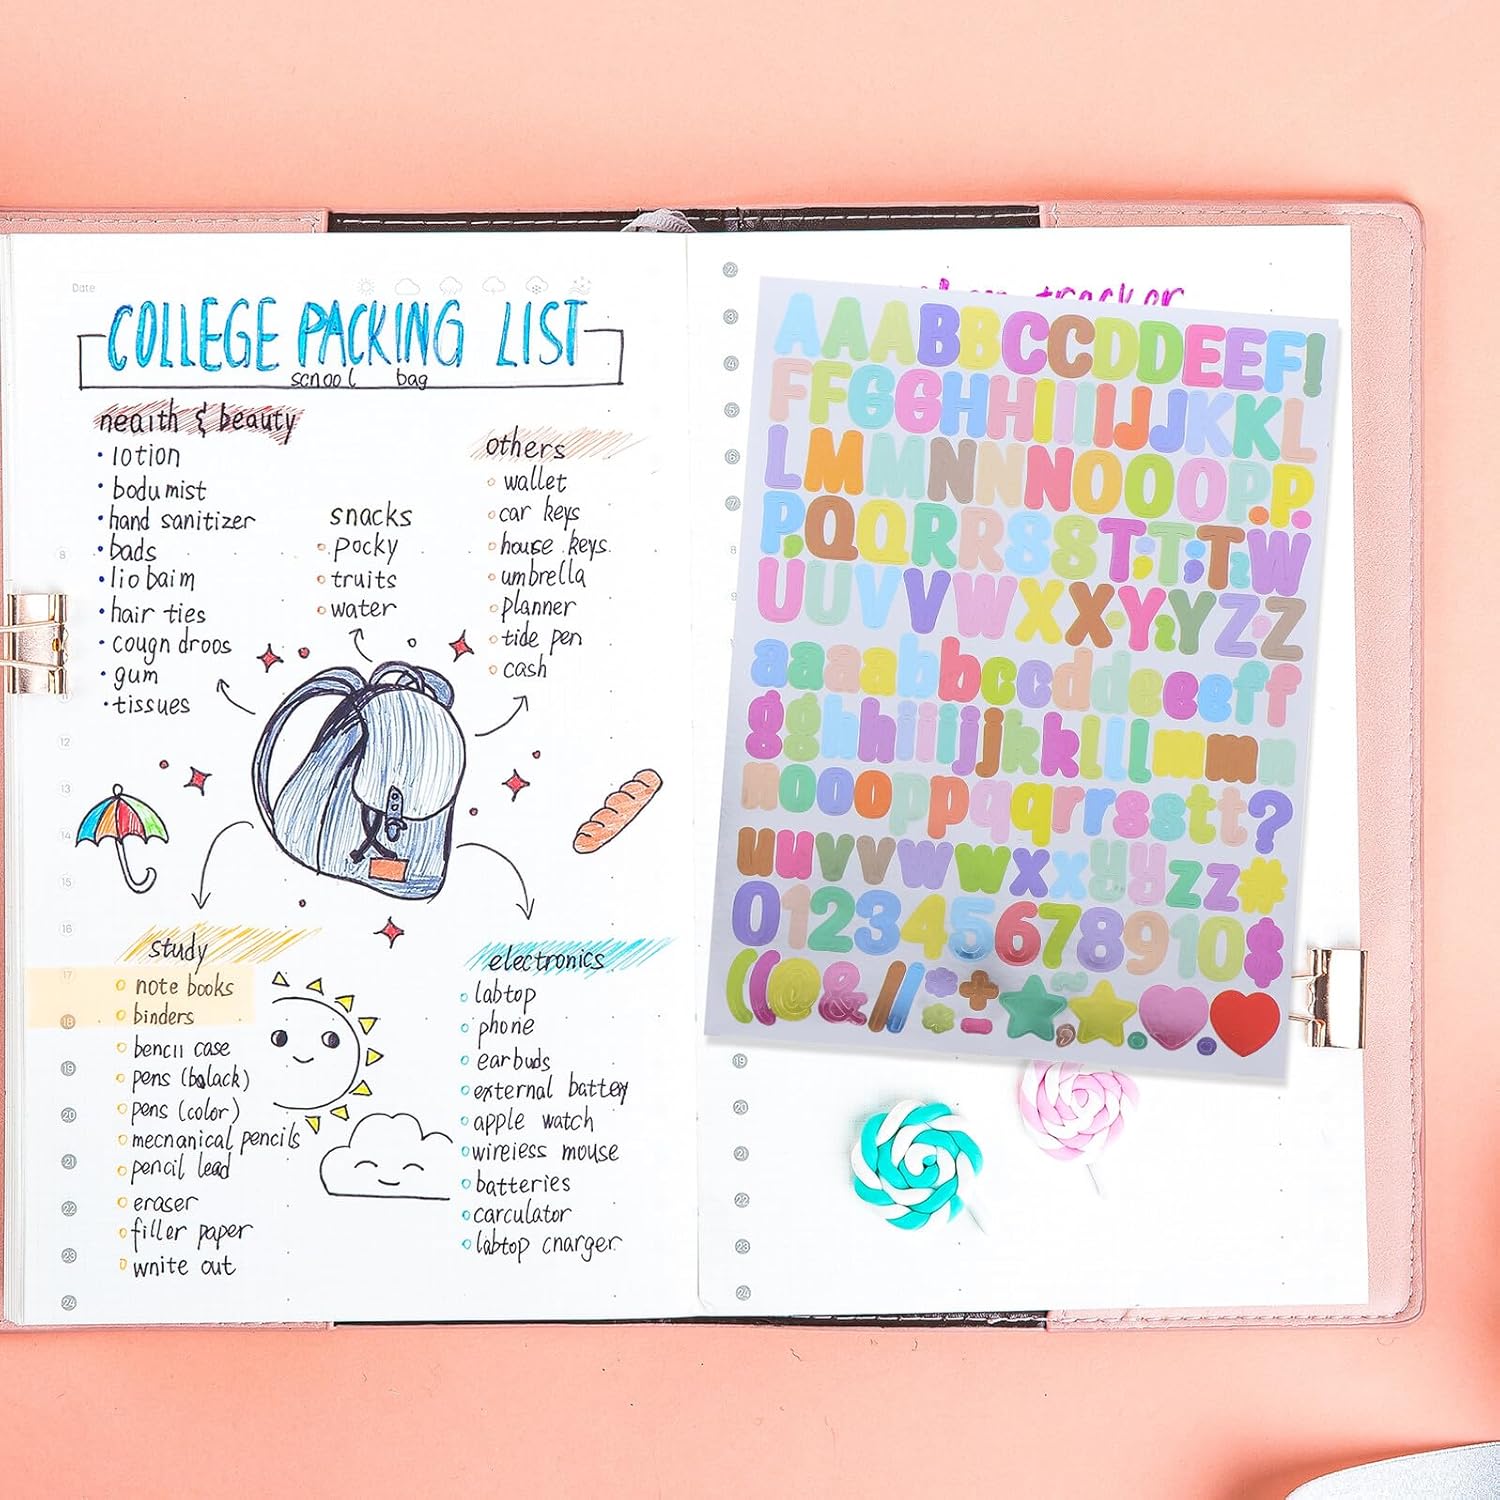 Date
COLLEGE PACKING LIST
scnool bag
neaith & beauty
lotion
bodu mist
hand sanitizer
bads
lio baim
hair ties
cougn droos
gum
tissues
snacks
pocky
truits
water
others
wallet
car keys
house keys
umbrella
planner
tide pen
cash
study
note books
binders
bencil case
pens (bolack)
pens (color)
mecnanical pencils
pencil lead
eraser
filler paper
wnite out
electronics
labtop
phone
earbuds
external battery
apple watch
wireiess mouse
batteries
carculator
labtop cnarger
8
12
13
14
15
16
17
18
19
20
21
22
23
24
tracker
2
3
4
5
6
7
8
9
AAABBCCDDEEF!
FFGGHHIIIJJKKL
LMMNNNNOOOPP.
P,QQRRSSTTTW
UUVVWXXYYZZ
aaaabbccddeeff
gghhiiijjkklllmmn
nooopppqqrrsstt?
uuvvwwxxyyzz#
012345678910$
((@&//*+÷-~,.
19
20
21
22
23
24